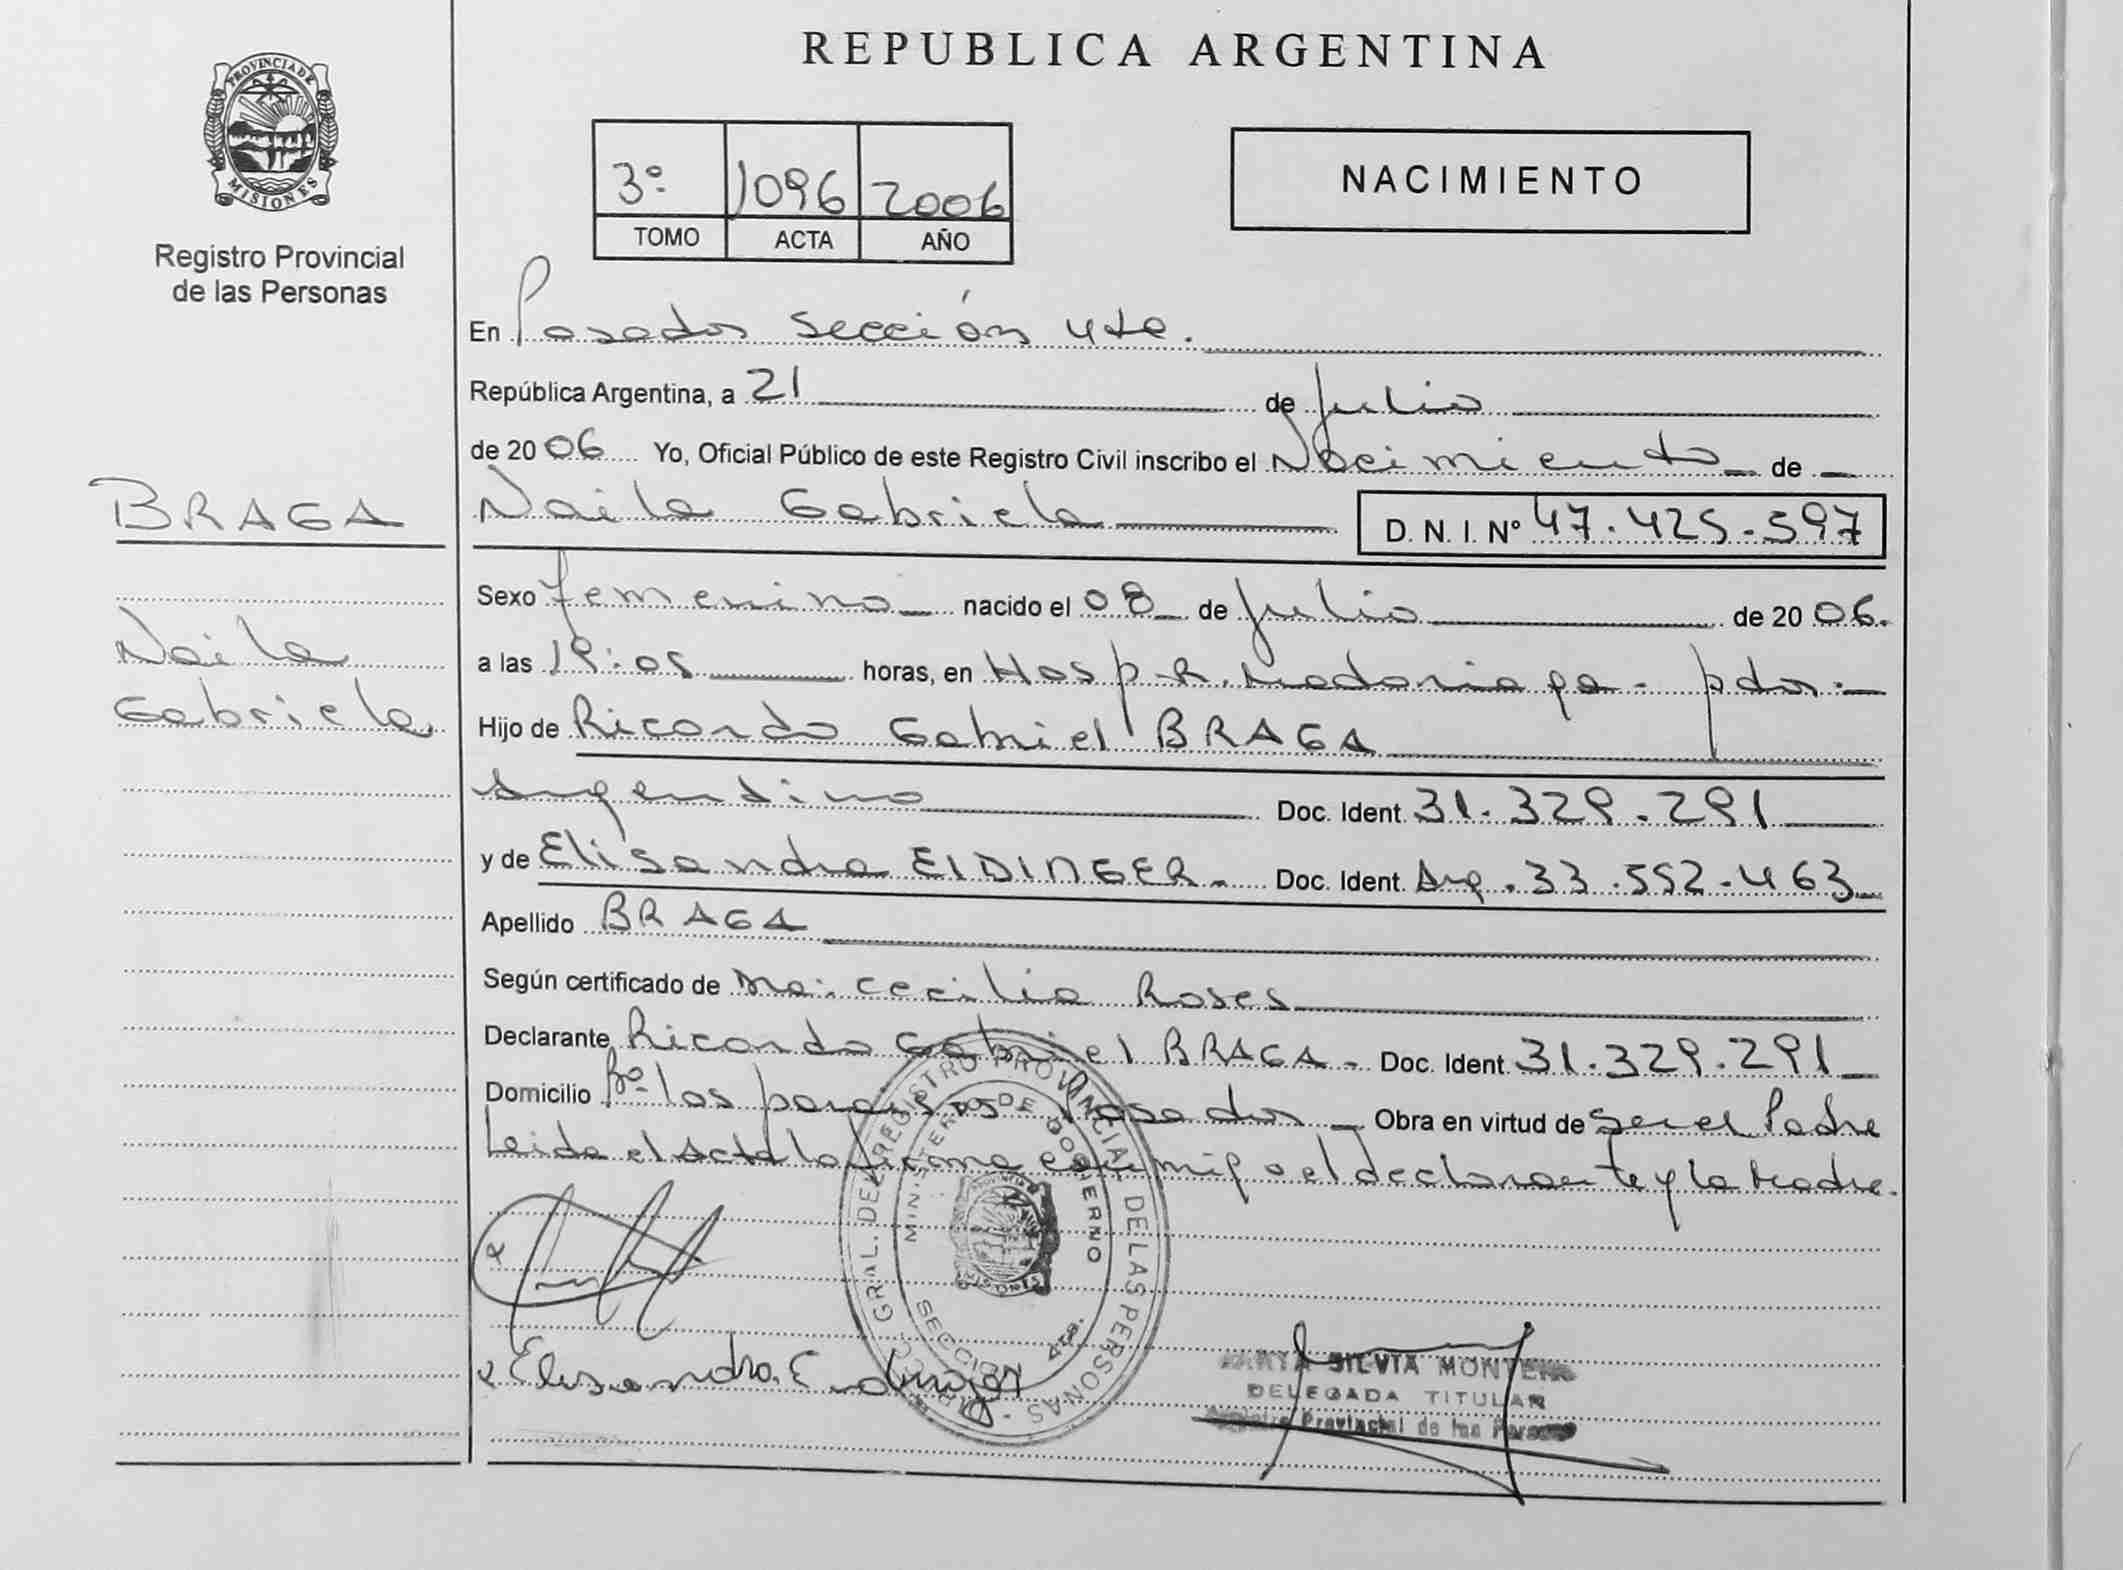 REPUBLICA ARGENTINA
PROVINCIA DE
MISIONES
Registro Provincial
de las Personas
3º 1096 2006
TOMO ACTA AÑO
NACIMIENTO
En Posadas Sección 4ta.
República Argentina, a 21 de Julio
de 2006 Yo, Oficial Público de este Registro Civil inscribo el Nacimiento de
BRAGA
Naila Gabriela
D. N. I. Nº 47.425.597
Sexo femenino nacido el 08 de Julio de 2006.
Naila
Gabriela
a las 19:05 horas, en Hosp. R. Madariaga - pdas.
Hijo de Ricardo Gabriel BRAGA
Argentino Doc. Ident. 31.329.291
y de Elisandra EIDINGER. Doc. Ident. Arg. 33.552.463
Apellido BRAGA
Según certificado de Ma. Cecilia Roses
Declarante Ricardo Gabriel BRAGA - Doc. Ident. 31.329.291
Domicilio Bº los paraisos Posadas Obra en virtud de Ser el Padre
Leida el Acta la firma conmigo el declarante y la Madre.
GRAL. DEL REGISTRO PROVINCIAL DE LAS PERSONAS
MINISTERIO DE GOBIERNO
PROVINCIA
MISIONES
SECCION 4ta.
Elisandra
SILVIA MONTE
DELEGADA TITULAR
Registro Provincial de las Personas